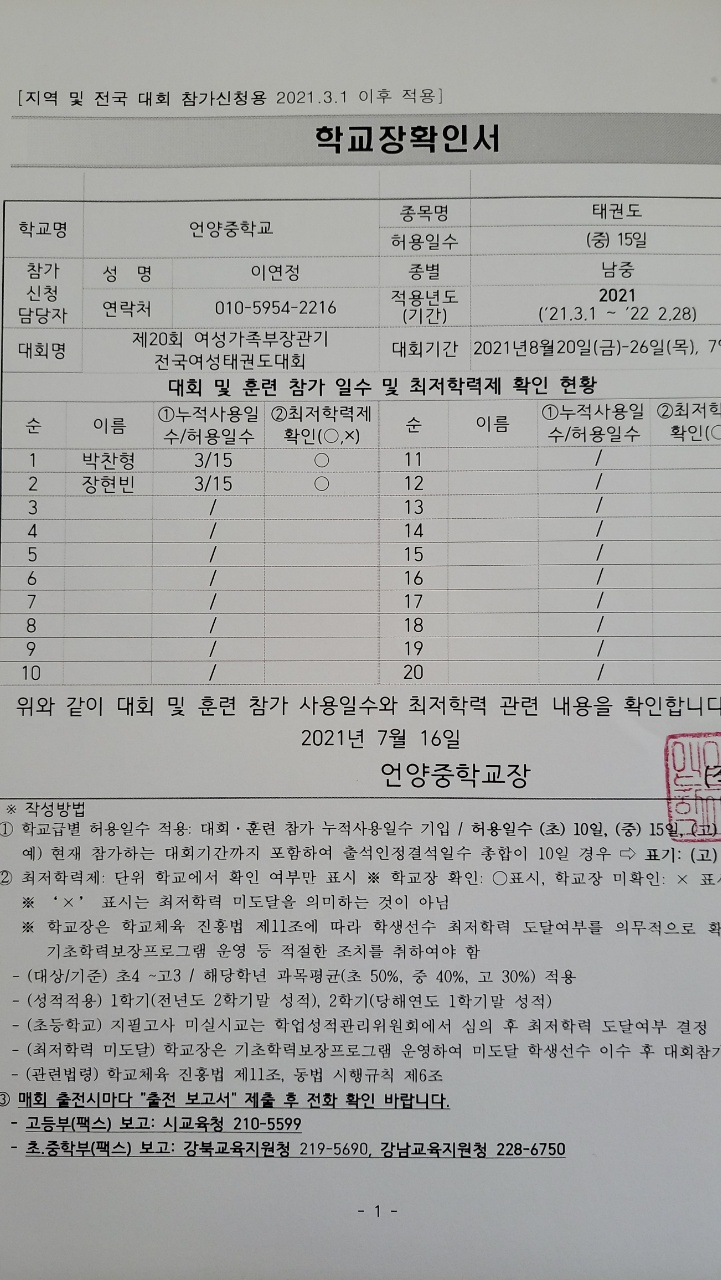 [지역 및 전국 대회 참가신청용 2021.3.1 이후 적용]
학교장확인서
학교명 언양중학교 종목명 태권도
허용일수 (중) 15일
참가 신청 담당자 성 명 이연정 종별 남중
연락처 010-5954-2216 적용년도 (기간) 2021 ('21.3.1 ~ '22 2.28)
대회명 제20회 여성가족부장관기 전국여성태권도대회 대회기간 2021년8월20일(금)-26일(목), 7
대회 및 훈련 참가 일수 및 최저학력제 확인 현황
순 이름 ①누적사용일수/허용일수 ②최저학력제 확인(○,×) 순 이름 ①누적사용일수/허용일수 ②최저학 확인(
1 박찬형 3/15 ○ 11 /
2 장현빈 3/15 ○ 12 /
3 / 13 /
4 / 14 /
5 / 15 /
6 / 16 /
7 / 17 /
8 / 18 /
9 / 19 /
10 / 20 /
위와 같이 대회 및 훈련 참가 사용일수와 최저학력 관련 내용을 확인합니다
2021년 7월 16일
언양중학교장
※ 작성방법
① 학교급별 허용일수 적용: 대회·훈련 참가 누적사용일수 기입 / 허용일수 (초) 10일, (중) 15일, (고)
예) 현재 참가하는 대회기간까지 포함하여 출석인정결석일수 총합이 10일 경우 ⇨ 표기: (고)
② 최저학력제: 단위 학교에서 확인 여부만 표시 ※ 학교장 확인: ○표시, 학교장 미확인: × 표시
※ '×' 표시는 최저학력 미도달을 의미하는 것이 아님
※ 학교장은 학교체육 진흥법 제11조에 따라 학생선수 최저학력 도달여부를 의무적으로 확
기초학력보장프로그램 운영 등 적절한 조치를 취하여야 함
- (대상/기준) 초4 ~고3 / 해당학년 과목평균(초 50%, 중 40%, 고 30%) 적용
- (성적적용) 1학기(전년도 2학기말 성적), 2학기(당해연도 1학기말 성적)
- (초등학교) 지필고사 미실시교는 학업성적관리위원회에서 심의 후 최저학력 도달여부 결정
- (최저학력 미도달) 학교장은 기초학력보장프로그램 운영하여 미도달 학생선수 이수 후 대회참가
- (관련법령) 학교체육 진흥법 제11조, 동법 시행규칙 제6조
③ 매회 출전시마다 "출전 보고서" 제출 후 전화 확인 바랍니다.
- 고등부(팩스) 보고: 시교육청 210-5599
- 초.중학부(팩스) 보고: 강북교육지원청 219-5690, 강남교육지원청 228-6750
- 1 -